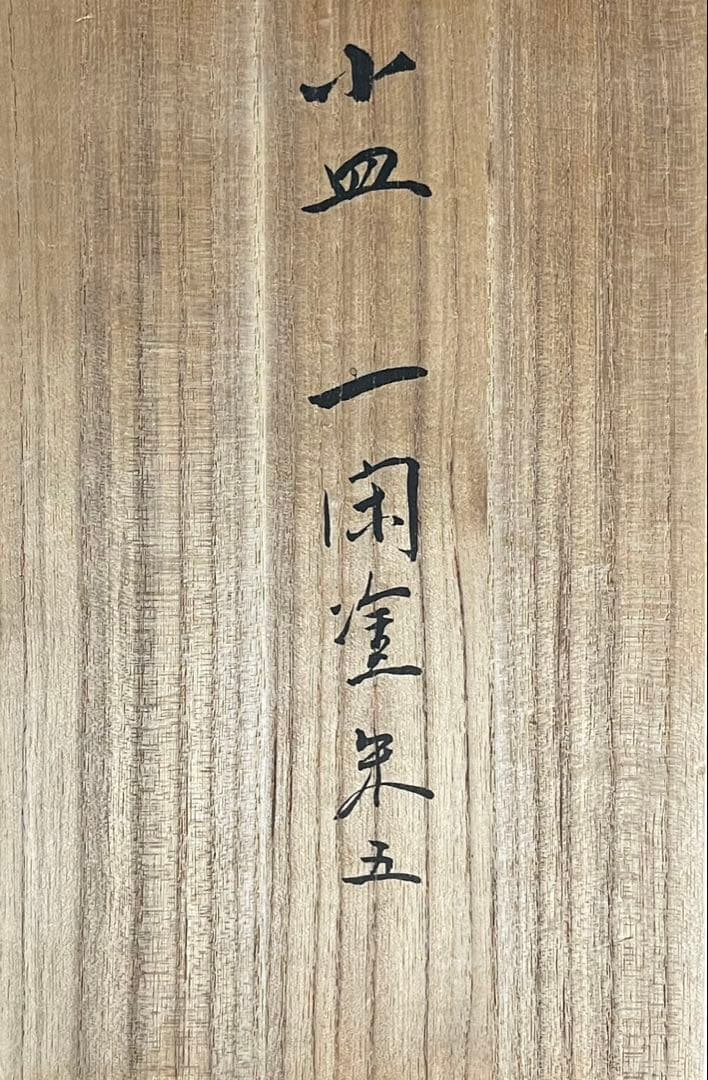 小皿 一閑塗朱五